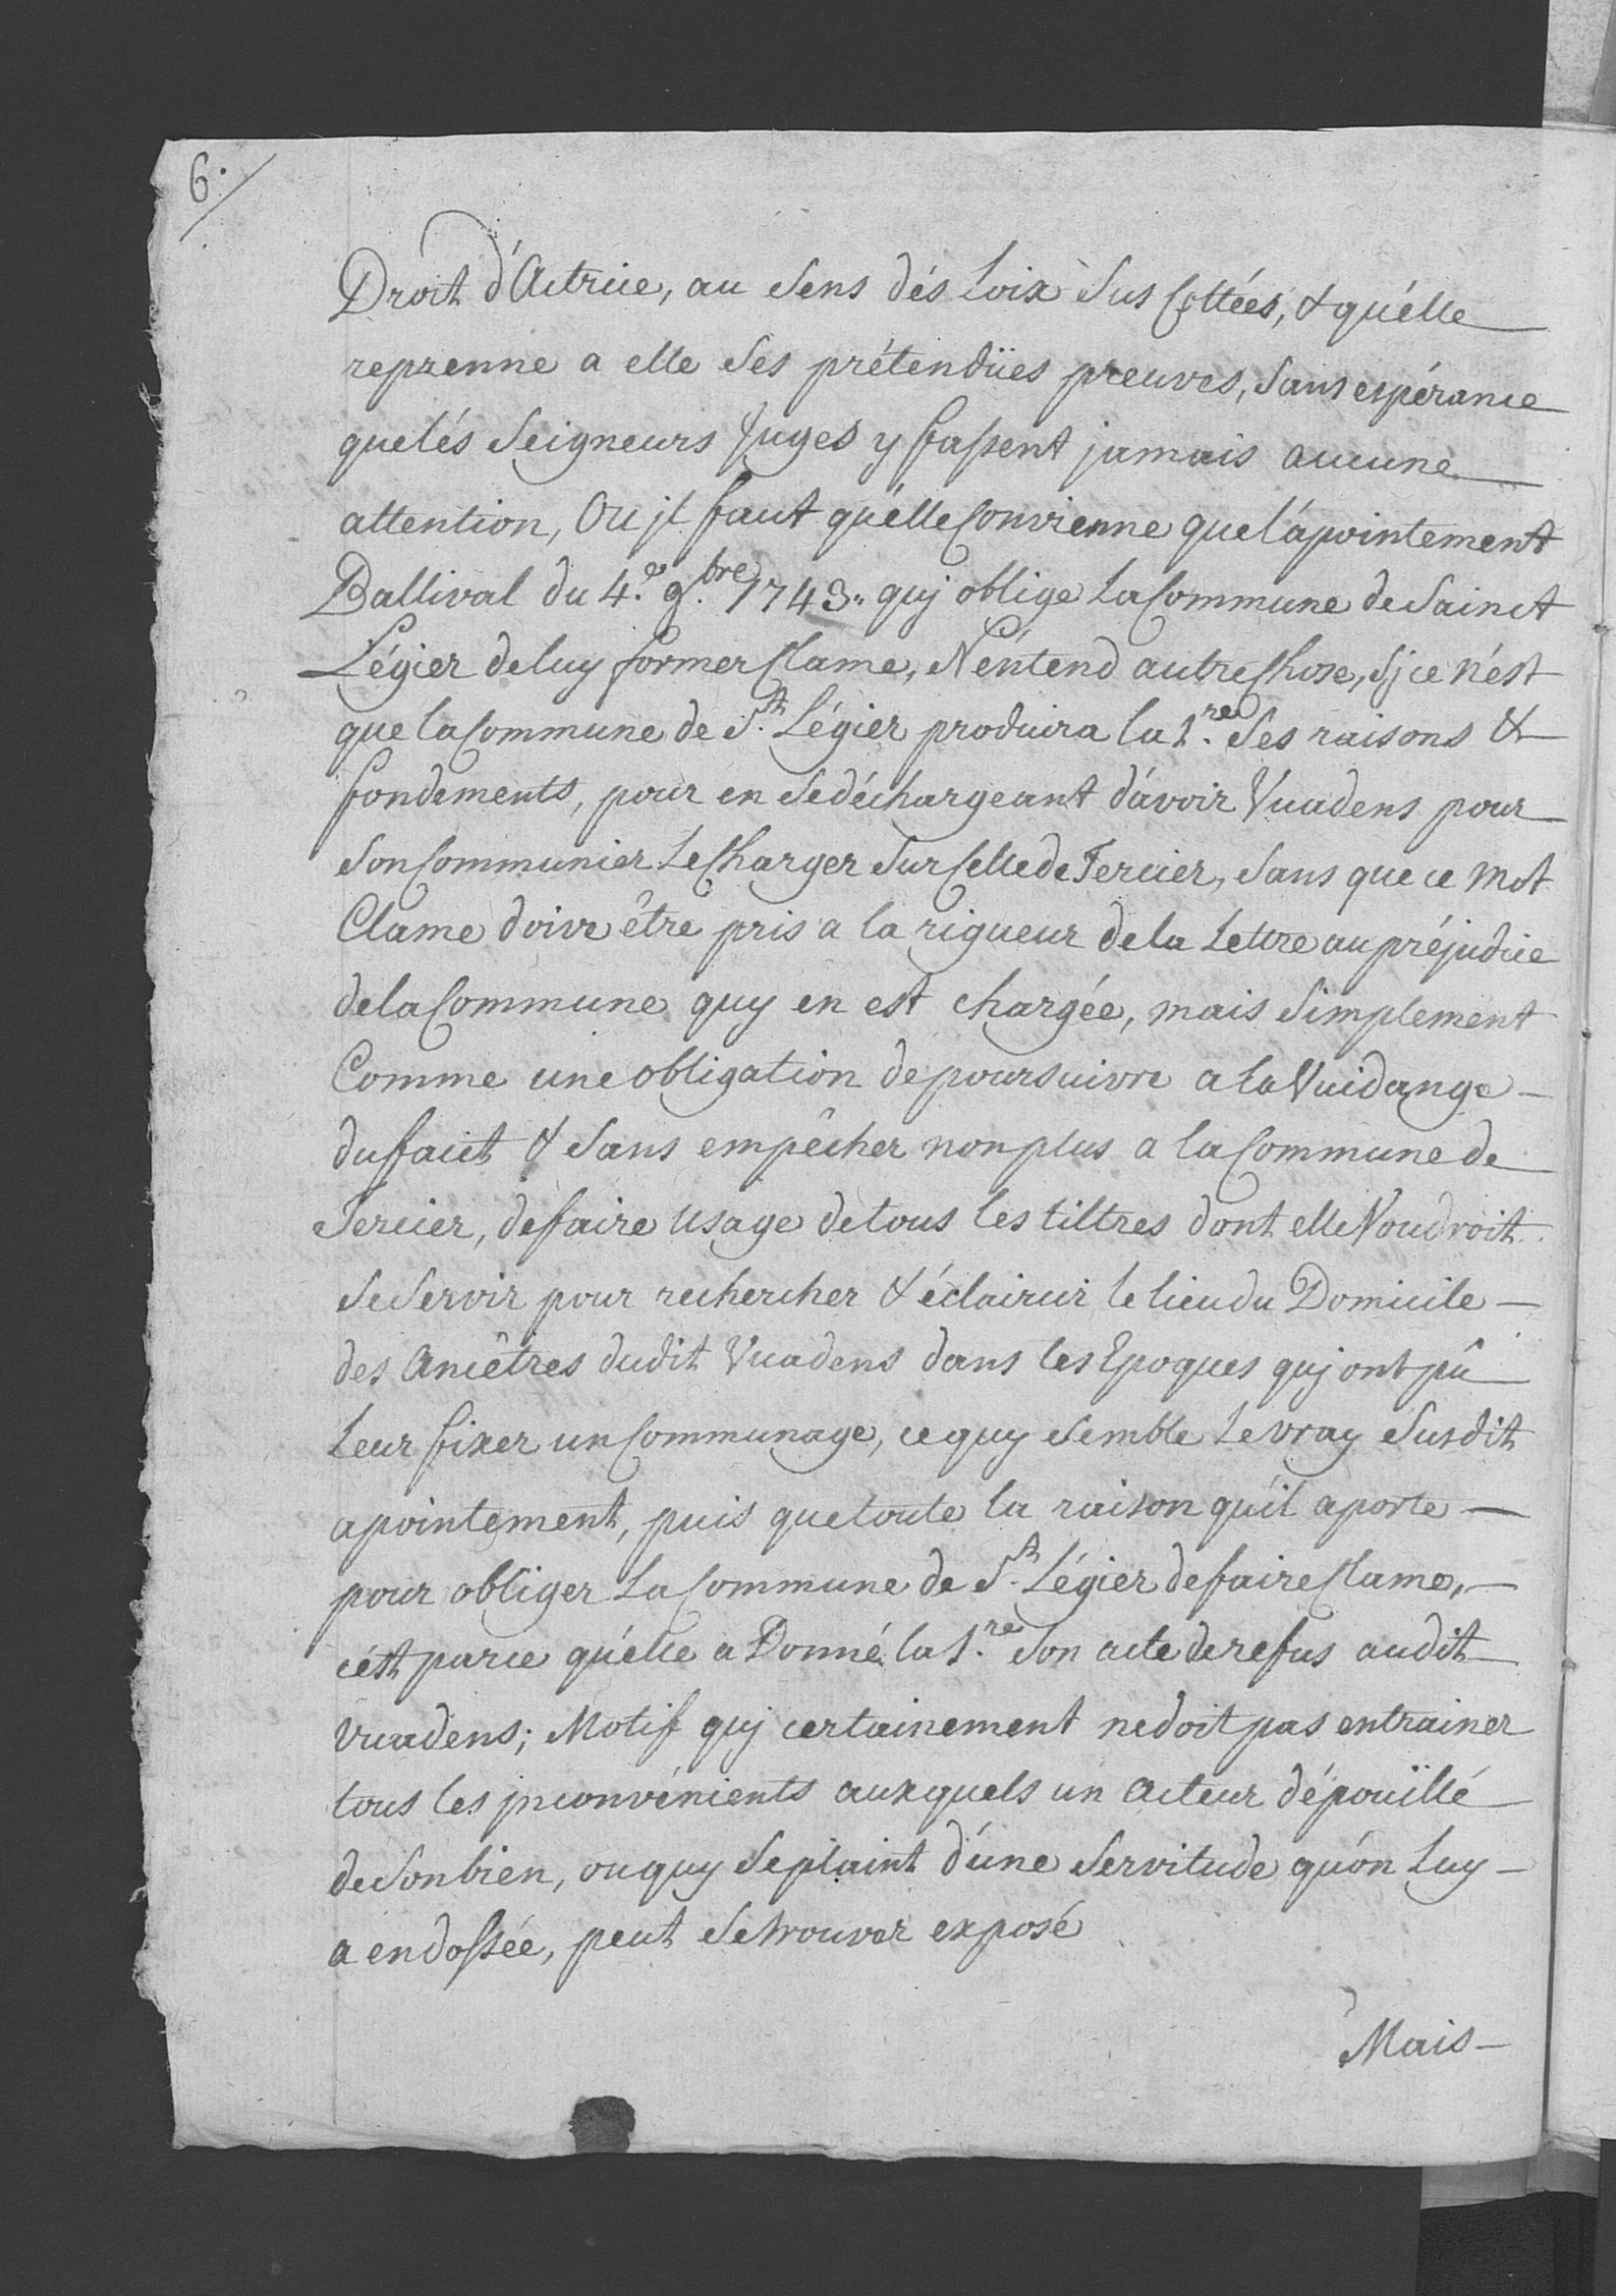 6.
Droit d'Actrice, au Sens dés Loix Sus Cottées, & qu'élle
reprenne a elle Ses prétendües preuves, Sans espérance
que lés Seigneurs Juges y fassent jamais aucune
attention, Ou jl faut qu'élle Convienne que l'apointement
Ballival du 4.e 9.bre 1743. quj oblige La Commune de Sainct
Légier de luy former Clame, N'éntend autre Chose, Sj ce n'ést
que la Commune de S.t Légier produira la 1.re Ses raisons &
fondements, pour en Se déchargeant d'avoir Vuadens pour
Son Communier Le Charger Sur Celle de Tercier, Sans que ce Mot
Clame doive être pris a la rigueur de la Lettre au préjudice
de la Commune quy en est chargée, mais Simplement
Comme une obligation de poursuivre a la Vuidange
du faict & Sans empêcher non plus a la Commune de
Tercier, de faire Usage de tous les tiltres dont elle Voudroit
Se Servir pour rechercher & éclaircir le lieu du Domicile
des Ancêtres dudit Vuadens dans les Epoques quj ont pû
Leur fixer un Communage, ce quy Semble Le vray Susdit
apointement, puis que toute la raison qu'il aporte
pour obliger La Commune de S.t Légier de faire Clame,
c'ést parce qu'élle a Donné la 1.re Son acte de refus audit
Vuadens; Motif quj certainement ne doit pas entrainer
tous les jnconvénients auxquels un Acteur dépouïllé
de Son bien, ou quy Se plaint d'úne Servitude qu'ón Luy
a endossée, peut Se trouver exposé
Mais